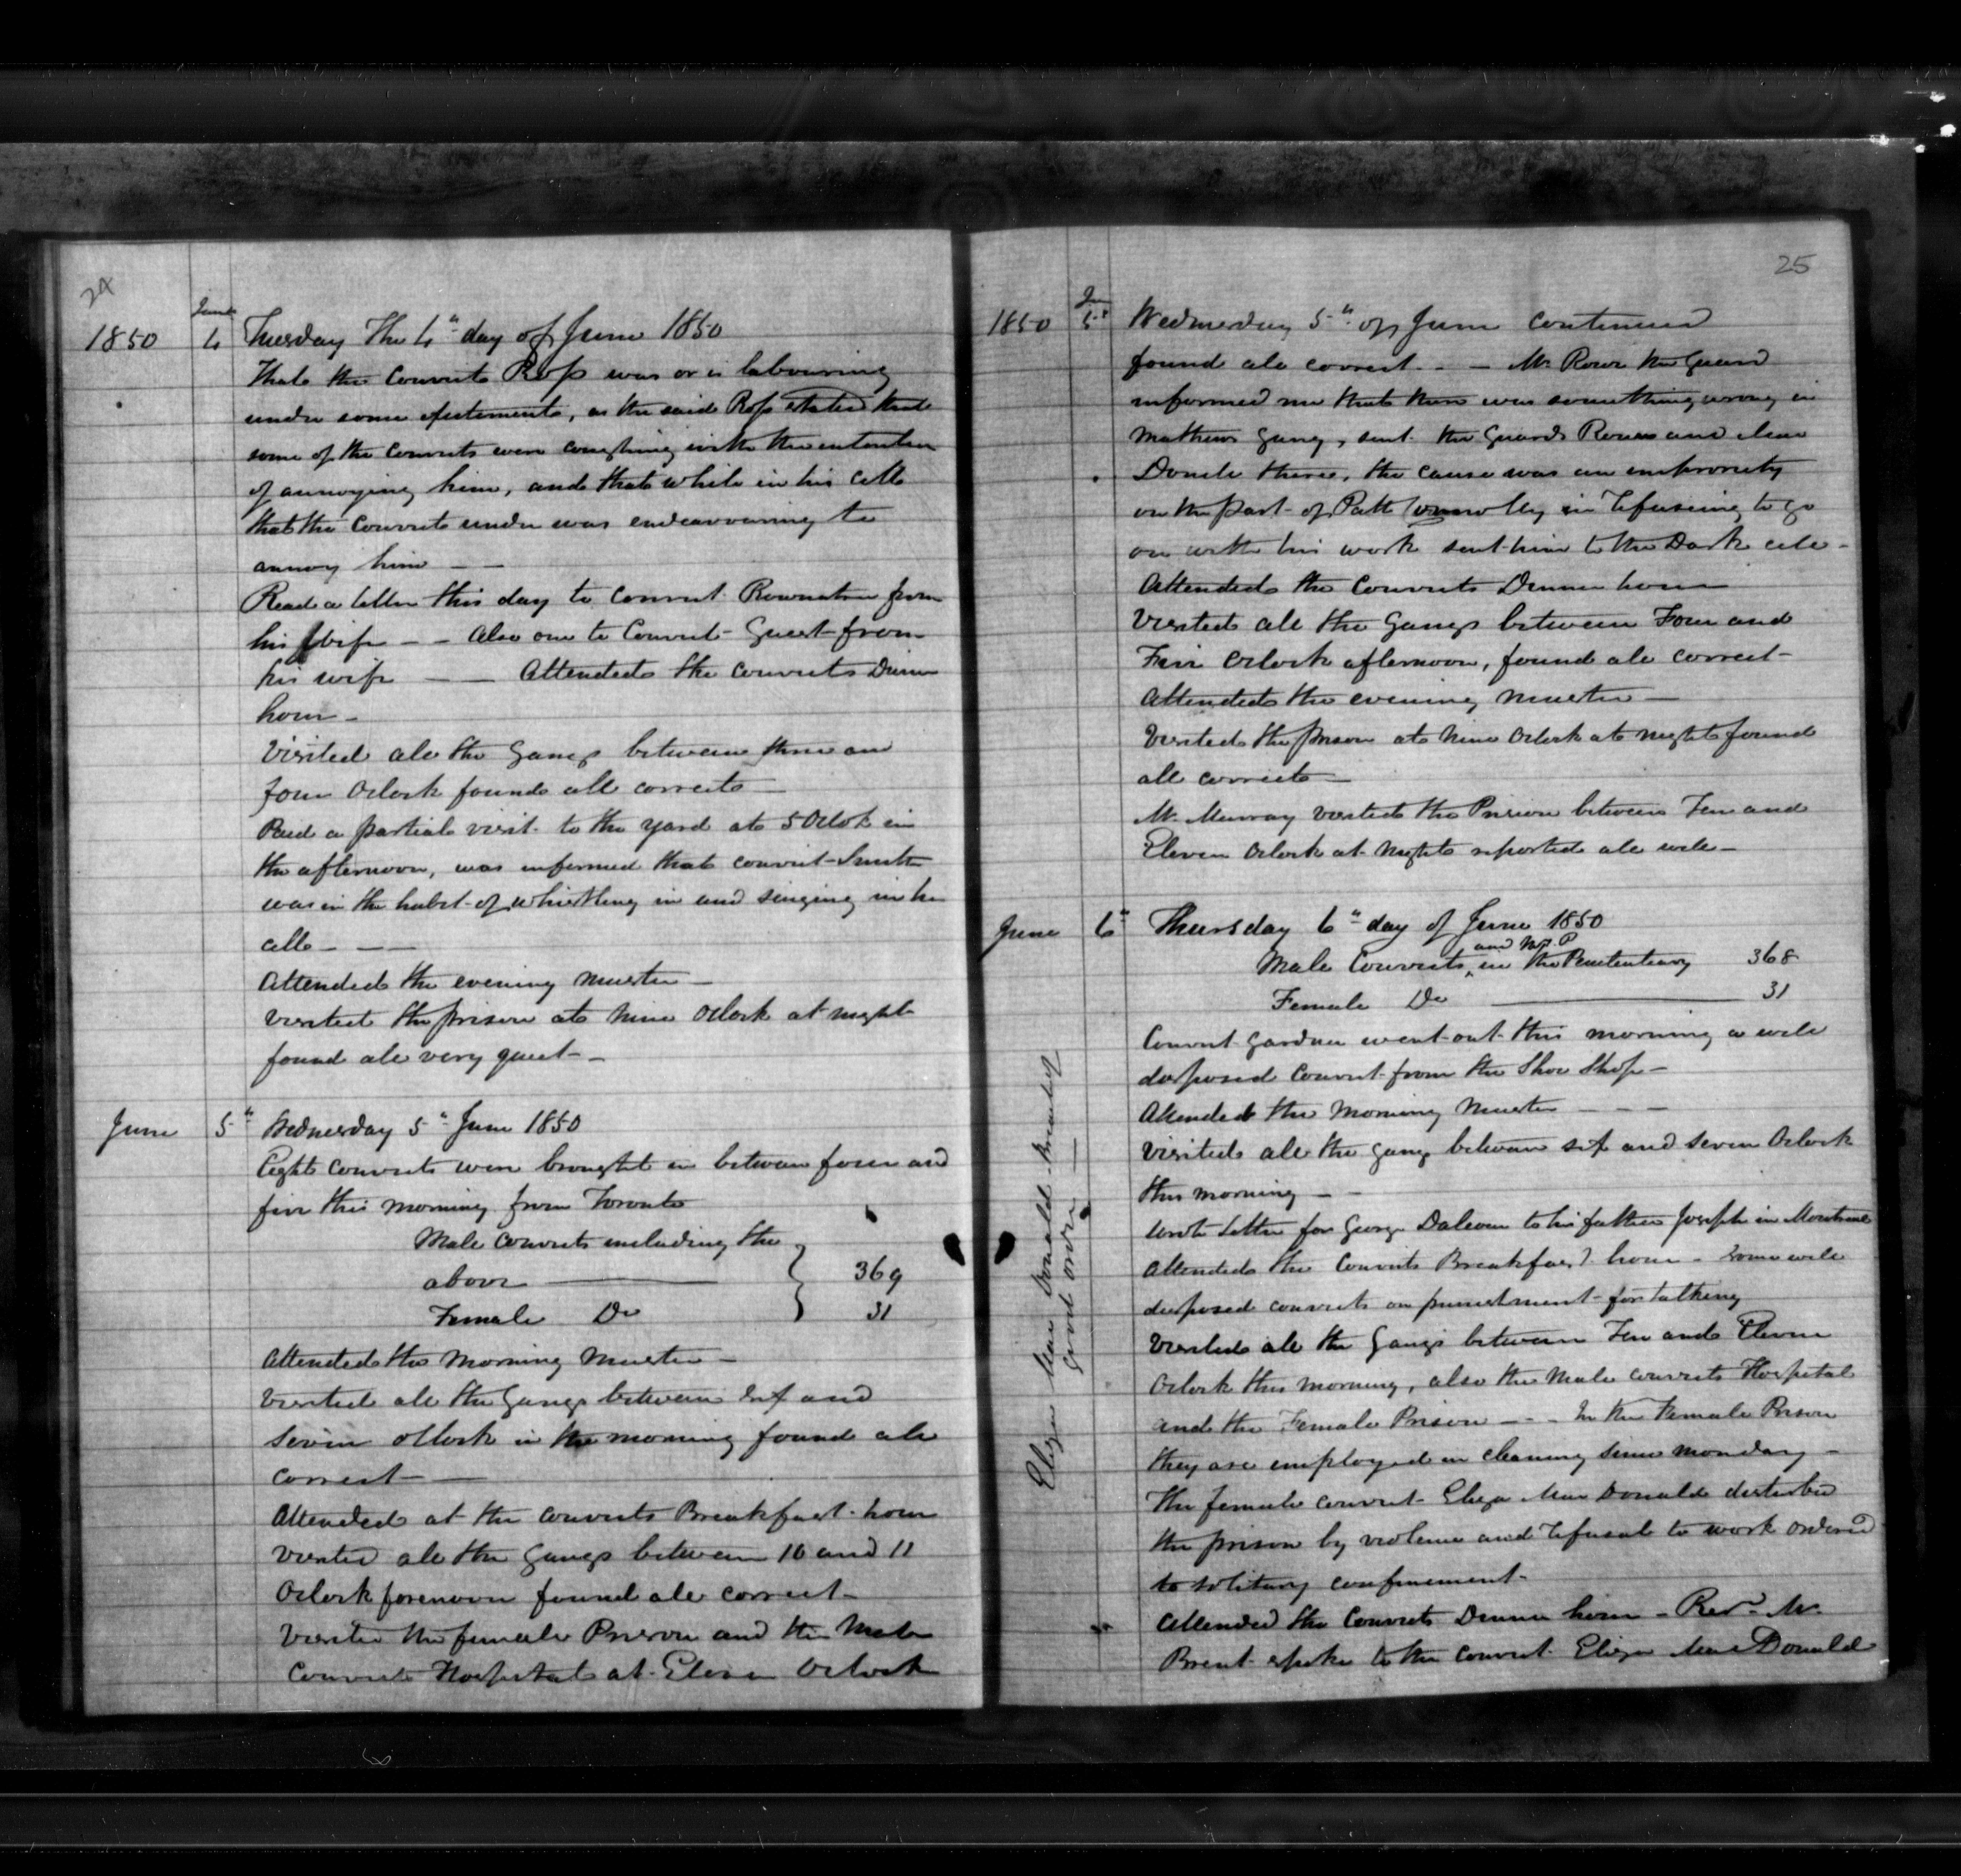 24
1850 June 4 Tuesday The 4th day of June 1850
that the Convict Ross was or is labouring
under some excitement, as the said Ross stated that
some of the Convicts were coughing with the intention
of annoying him, and that while in his cell
that the Convict under was endeavouring to
annoy him — —
Read a letter this day to Convict from
his Wife — — Also one to Convict Guest from
his wife — — Attended the Convicts Dinner
hour —
Visited all the Gangs between three and
four Oclock found all correct —
Paid a partial visit to the yard at 5 Oclok in
the afternoon, was informed that convict Smith
was in the habit of whistling in and singing in his
cell — — —
Attended the evening Muster —
Visited the prison at Nine Oclock at night
found all very quiet — —
June 5th Wednesday 5th June 1850
Eight Convicts were brought in between four and
five this morning from Toronto
Male Convicts including the
above — 369
Female Do 31
Attended the Morning Muster —
Visited all the Gangs between Six and
Seven oClock in the morning found all
correct — —
Attended at the Convicts Breakfast hour
Visited all the Gangs between 10 and 11
Oclock forenoon found all correct —
Visited the female Prison and the Male
Convicts Hospital at Eleven Oclock
25
1850 June 5th Wednesday 5th of June Continued
found all correct — — Mr. Rowe the Guard
informed me that there was something wrong in
Mathews Gang, sent the Guards Rowe and
there, the cause was an
on the part of Patk Connolly in refuseing to go
on with his work sent him to the Dark cell —
Attended the Convicts Dinner hour —
Visited all the Gangs between Four and
Five Oclock afternoon, found all correct —
Attended the evening Muster —
Visited the prison at Nine Oclock at night found
all correct —
Mr. Murray visited the Prison between Ten and
Eleven Oclock at night reported all well —
June 6th Thursday 6th day of June 1850
and M. P.
Male Convicts ‸ in the Penitentiary 368
Female Do — 31
Convict Gardner went out this morning a well
disposed Convict from the Shoe Shop —
Attended the Morning Muster — — —
Visited all the Gang between six and seven Oclock
this morning — —
Wrote letter for George to his father Joseph in Montreal
Attended the Convicts Breakfast hour — Some well
disposed convicts on punishment for talking
Visited all the Gangs between Ten and Eleven
Oclock this morning, also the Male convicts Hospital
and the Female Prison — — — In the Female Prison
they are employed in cleaning since Monday —
The female convict Eliza MacDonald disturbed
the prison by violence and refusal to work ordered
to solitary confinement —
Attended the Convicts Dinner hour — Revd. Mr.
Brent spoke to the Convict Eliza MacDonald
Eliza MacDonald
good order —